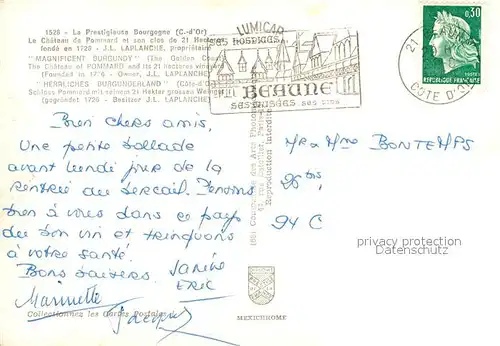 1528 - La Prestigieuse Bourgogne (C.-d'Or)
Le Château de Pommard et son clos de 21 Hectares
fondé en 1720 - J.L. LAPLANCHE, propriétaire
"MAGNIFICENT BURGUNDY" (The Golden Coast)
The Château of POMMARD and its 21 hectares vineyard
(Founded in 1726 - Owner, J.L. LAPLANCHE)
"HERRLICHES BURGUNDERLAND" (Côte-d'Or)
Schloss Pommard mit seinem 21 Hektar grossem Weingut
(gegründet 1726 - Besitzer J.L. LAPLANCHE)
LUMICAP
SES HOSPICES
BEAUNE
SES MUSÉES SES VINS
21
CÔTE D'OR
0,30
REPUBLIQUE FRANÇAISE
POSTES
Bien chers amis,
Une petite ballade
avant lundi jour de la
rentrée au bercail. Pensons
bien à vous dans ce pays
du bon vin et trinquons
à votre santé.
Bons baisers. Janine
ERIC
Marinette
Jacques
Mr & Mme BONTEMPS
bis,
94 C
Reproduction interdite
privacy protection
Datenschutz
MEXICHROME
Collectionnez les Cartes Postales